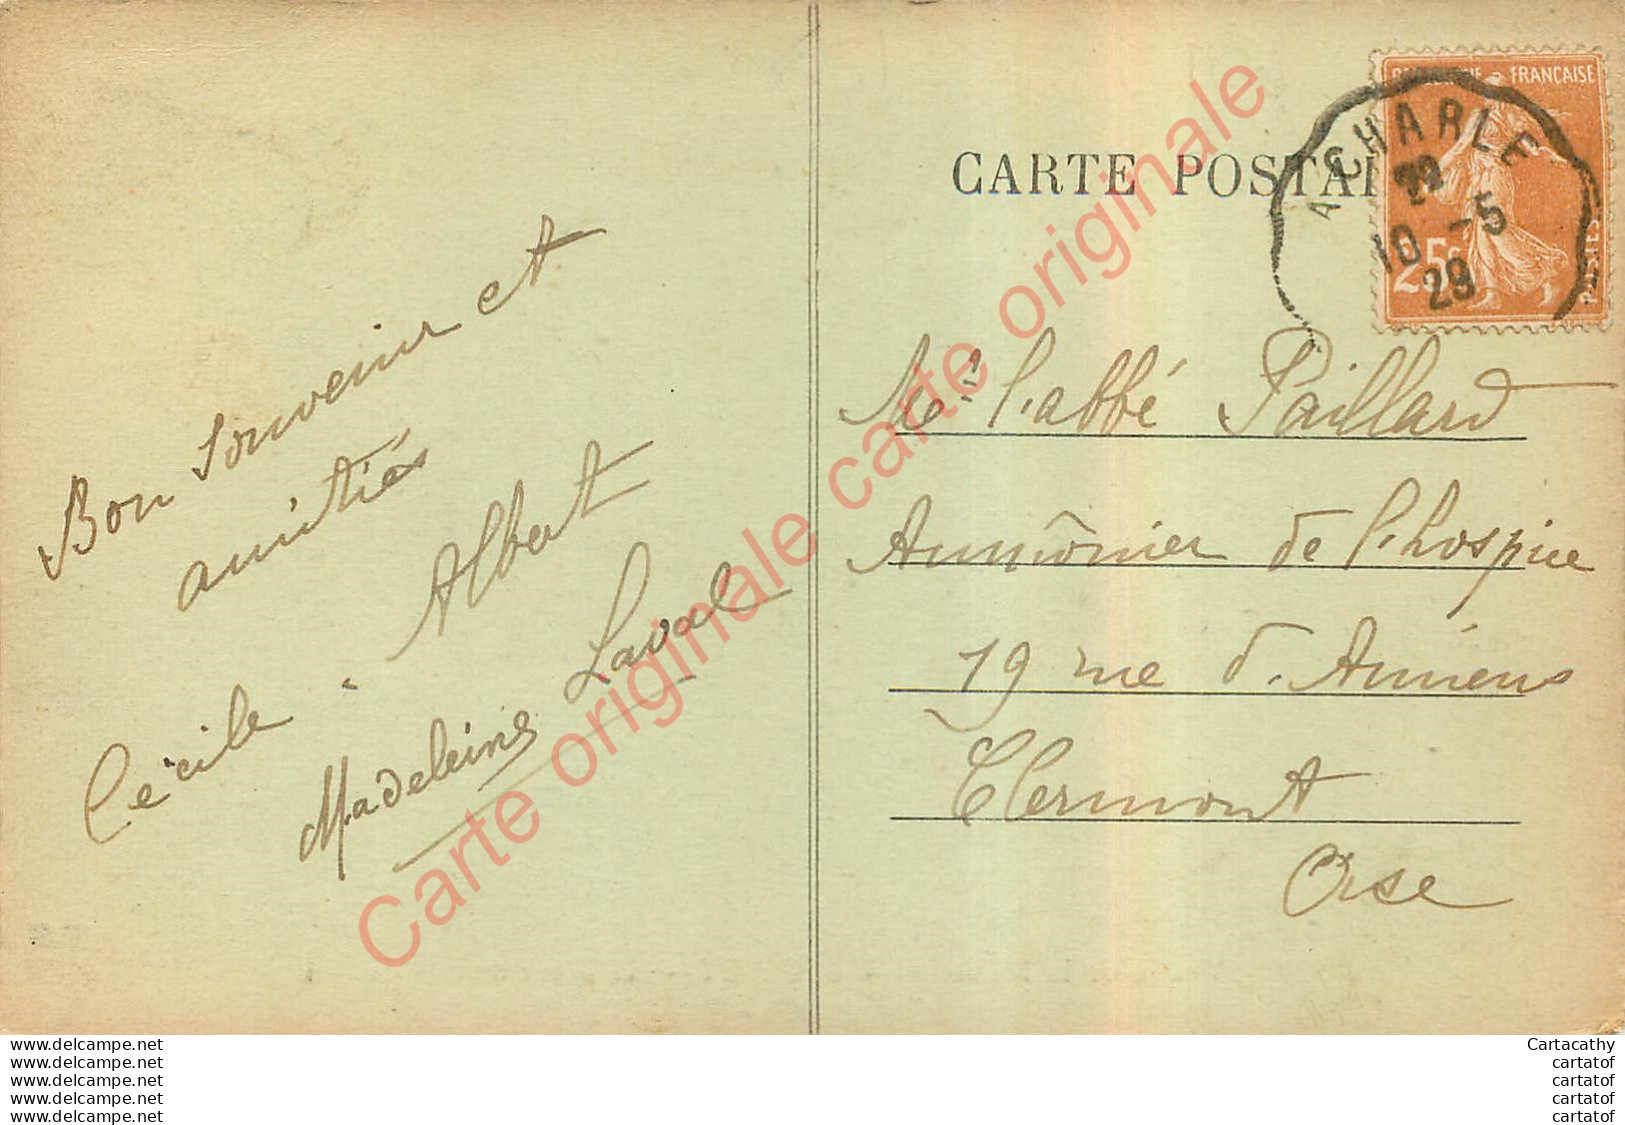 CARTE POSTA
FRANÇAISE
25c
POSTES
A CHARLE
10 -5
29
Bon souvenir et
amitiés
Albert
Cécile - Madeleine Laval
Mr l'abbé Paillard
Aumônier de l'hospice
19 rue d'Amiens
Clermont
Oise
Carte originale carte originale
Carte originale
www.delcampe.net
www.delcampe.net
www.delcampe.net
www.delcampe.net
www.delcampe.net
Cartacathy
cartatof
cartatof
cartatof
cartatof